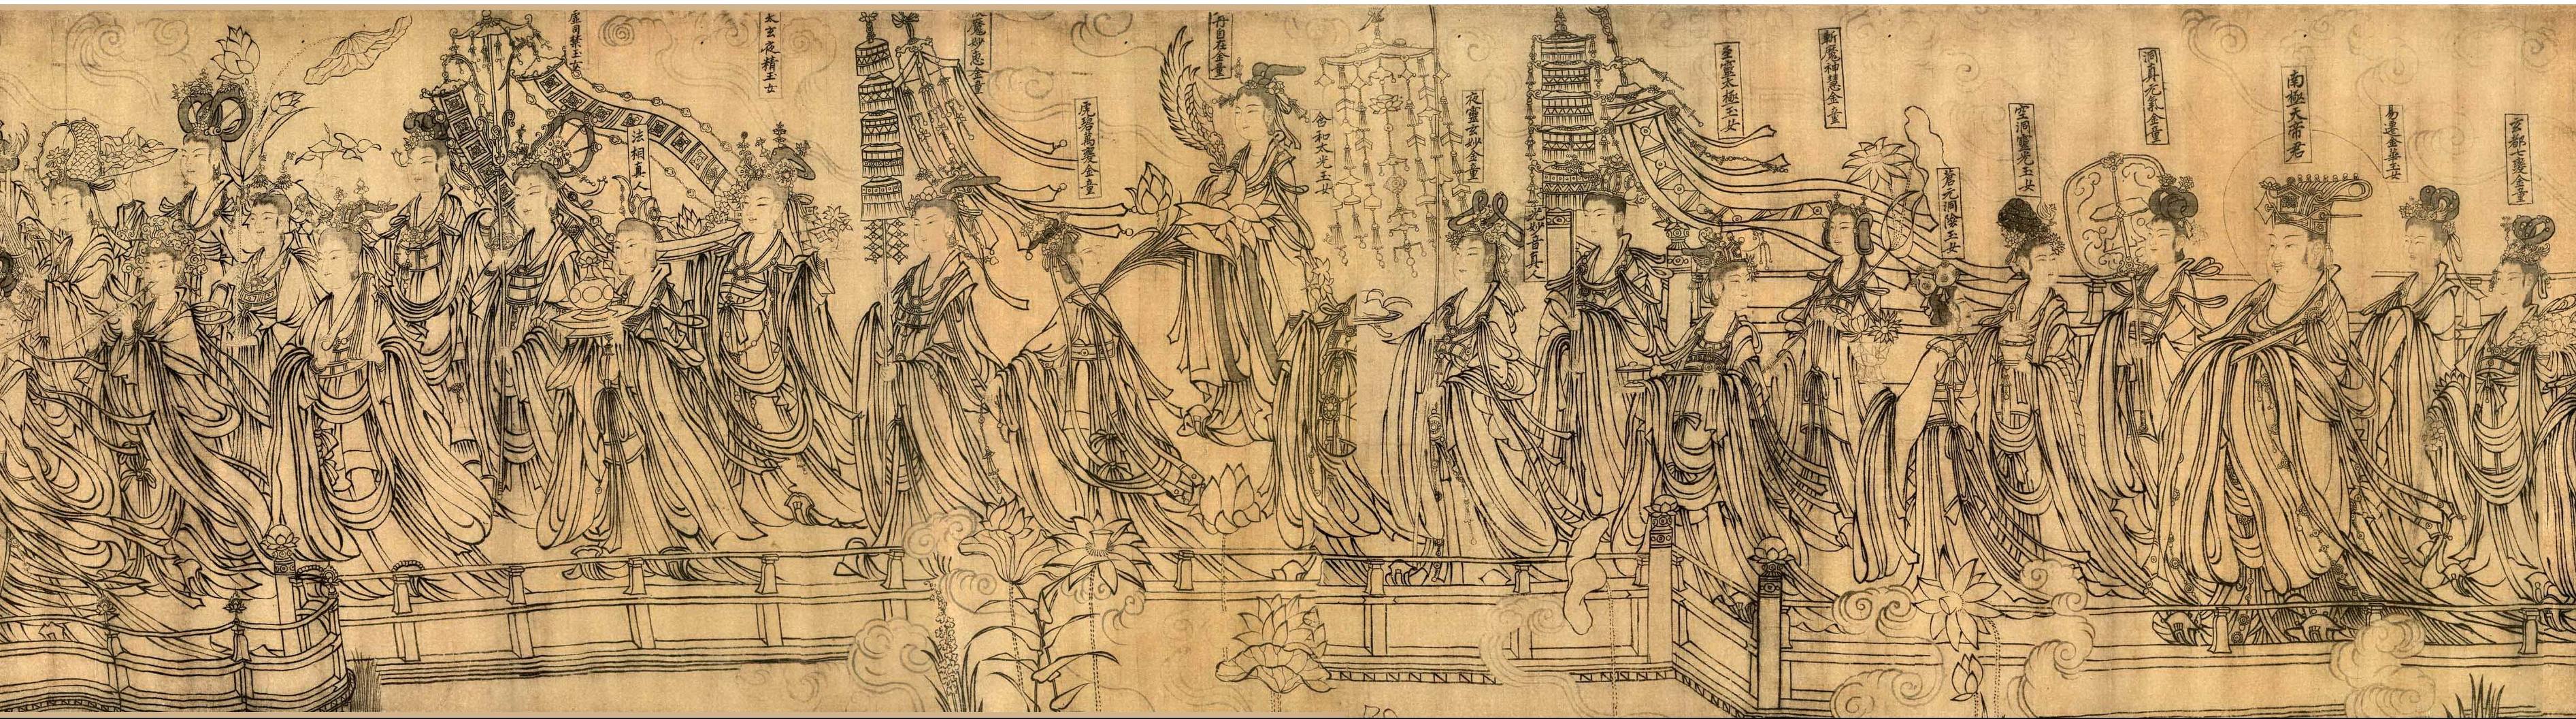 玄都七慶金童
易遷金華玉女
南極天帝君
洞真元氣金童
空洞靈光玉女
蒼元洞陰玉女
斬魔神慧金童
至靈太極玉女
妙音真人
夜靈玄妙金童
含和太光玉女
丹自在金童
虎碧萬慶金童
魔妙惠金童
太玄夜精玉女
法相真人
虛司禁玉女